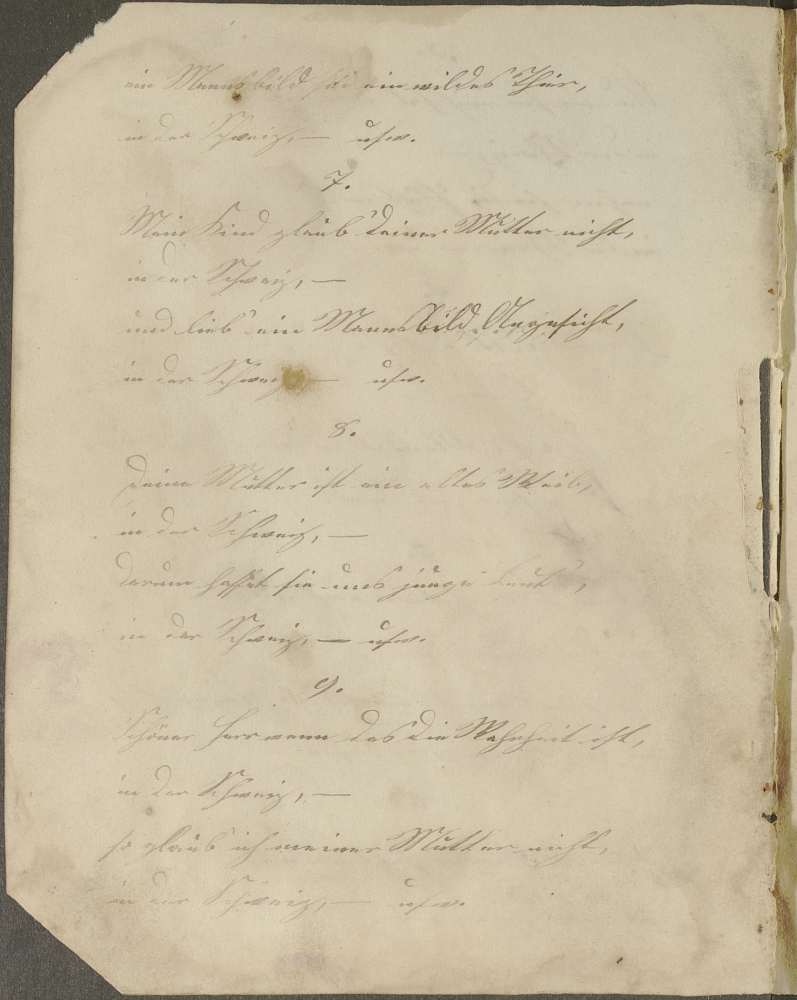 ein Mannsbild sei ein wildes Thier,
in der Schweiz, — usw.
7.
Mein Kind glaub deiner Mutter nicht,
in der Schweiz, —
und lieb ein Mannsbild Angesicht,
in der Schweiz, — usw.
8.
Deine Mutter ist ein altes Weib,
in der Schweiz, —
darum hasset sie uns junge Leut,
in der Schweiz, — usw.
9.
Schöner Herr wenn das die Wahrheit ist,
in der Schweiz, —
so glaub ich meiner Mutter nicht,
in der Schweiz, — usw.